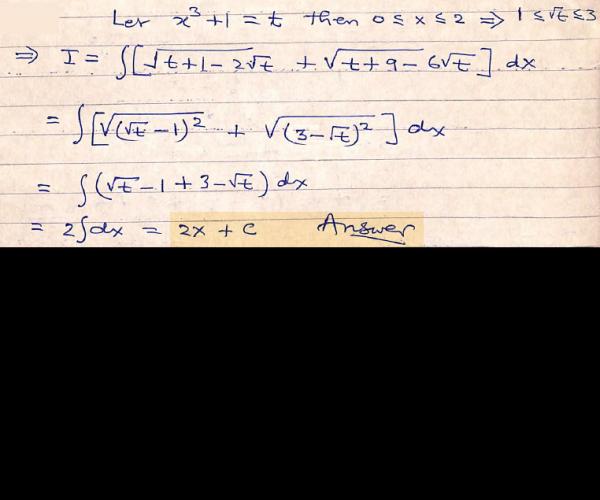 Let x³+1 = t then 0 ≤ x ≤ 2 ⇒ 1 ≤ √t ≤ 3
⇒ I = ∫[√(t+1-2√t) + √(t+9-6√t)] dx
= ∫[√((√t-1)²) + √((3-√t)²)] dx
= ∫(√t-1+3-√t) dx
= 2∫dx = 2x + c Answer